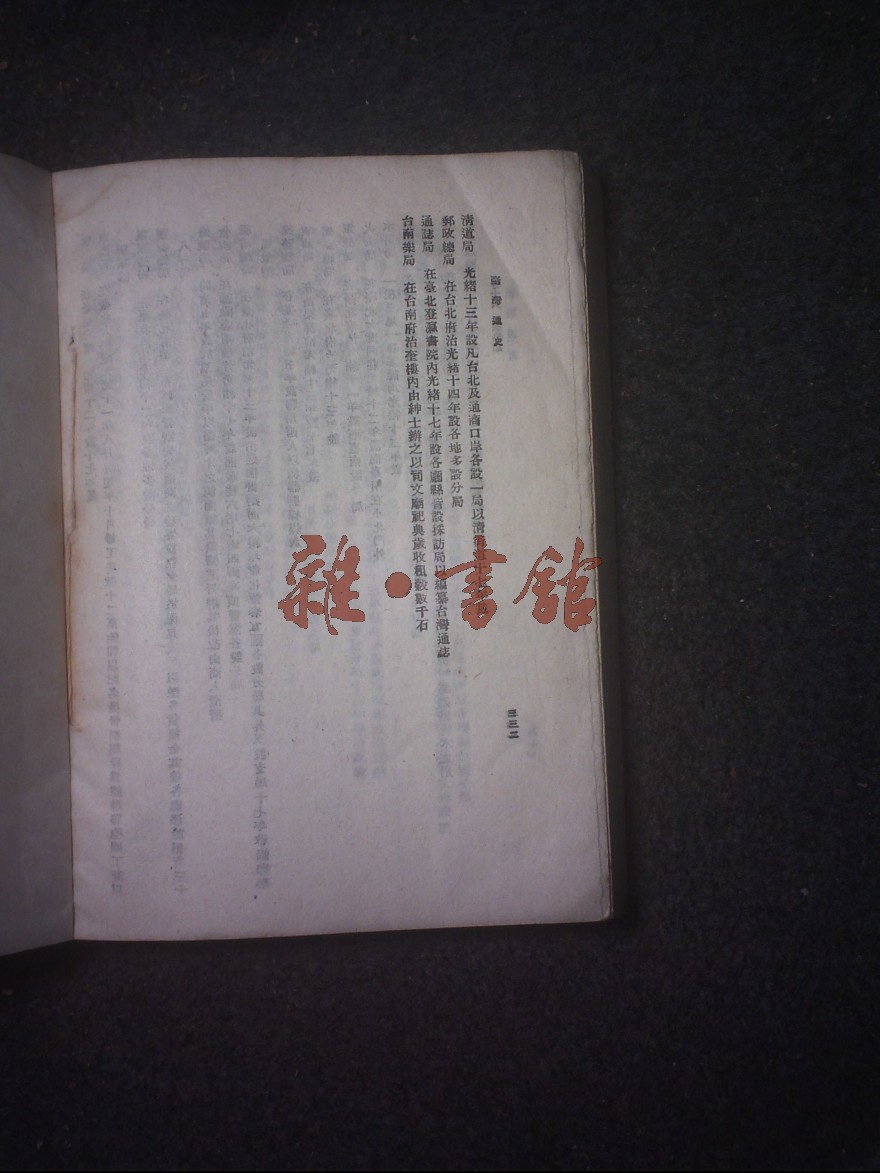 臺灣通史
清道局　光緒十三年設凡台北及通商口岸各設一局以清
郵政總局　在台北府治光緒十四年設各地多設分局
通誌局　在臺北登瀛書院內光緒十七年設各廳縣皆設採訪局以編纂台灣通誌
台南樂局　在台南府治奎樓內由紳士辦之以司文廟祀典歲收租穀數千石
三三二
雜·書館